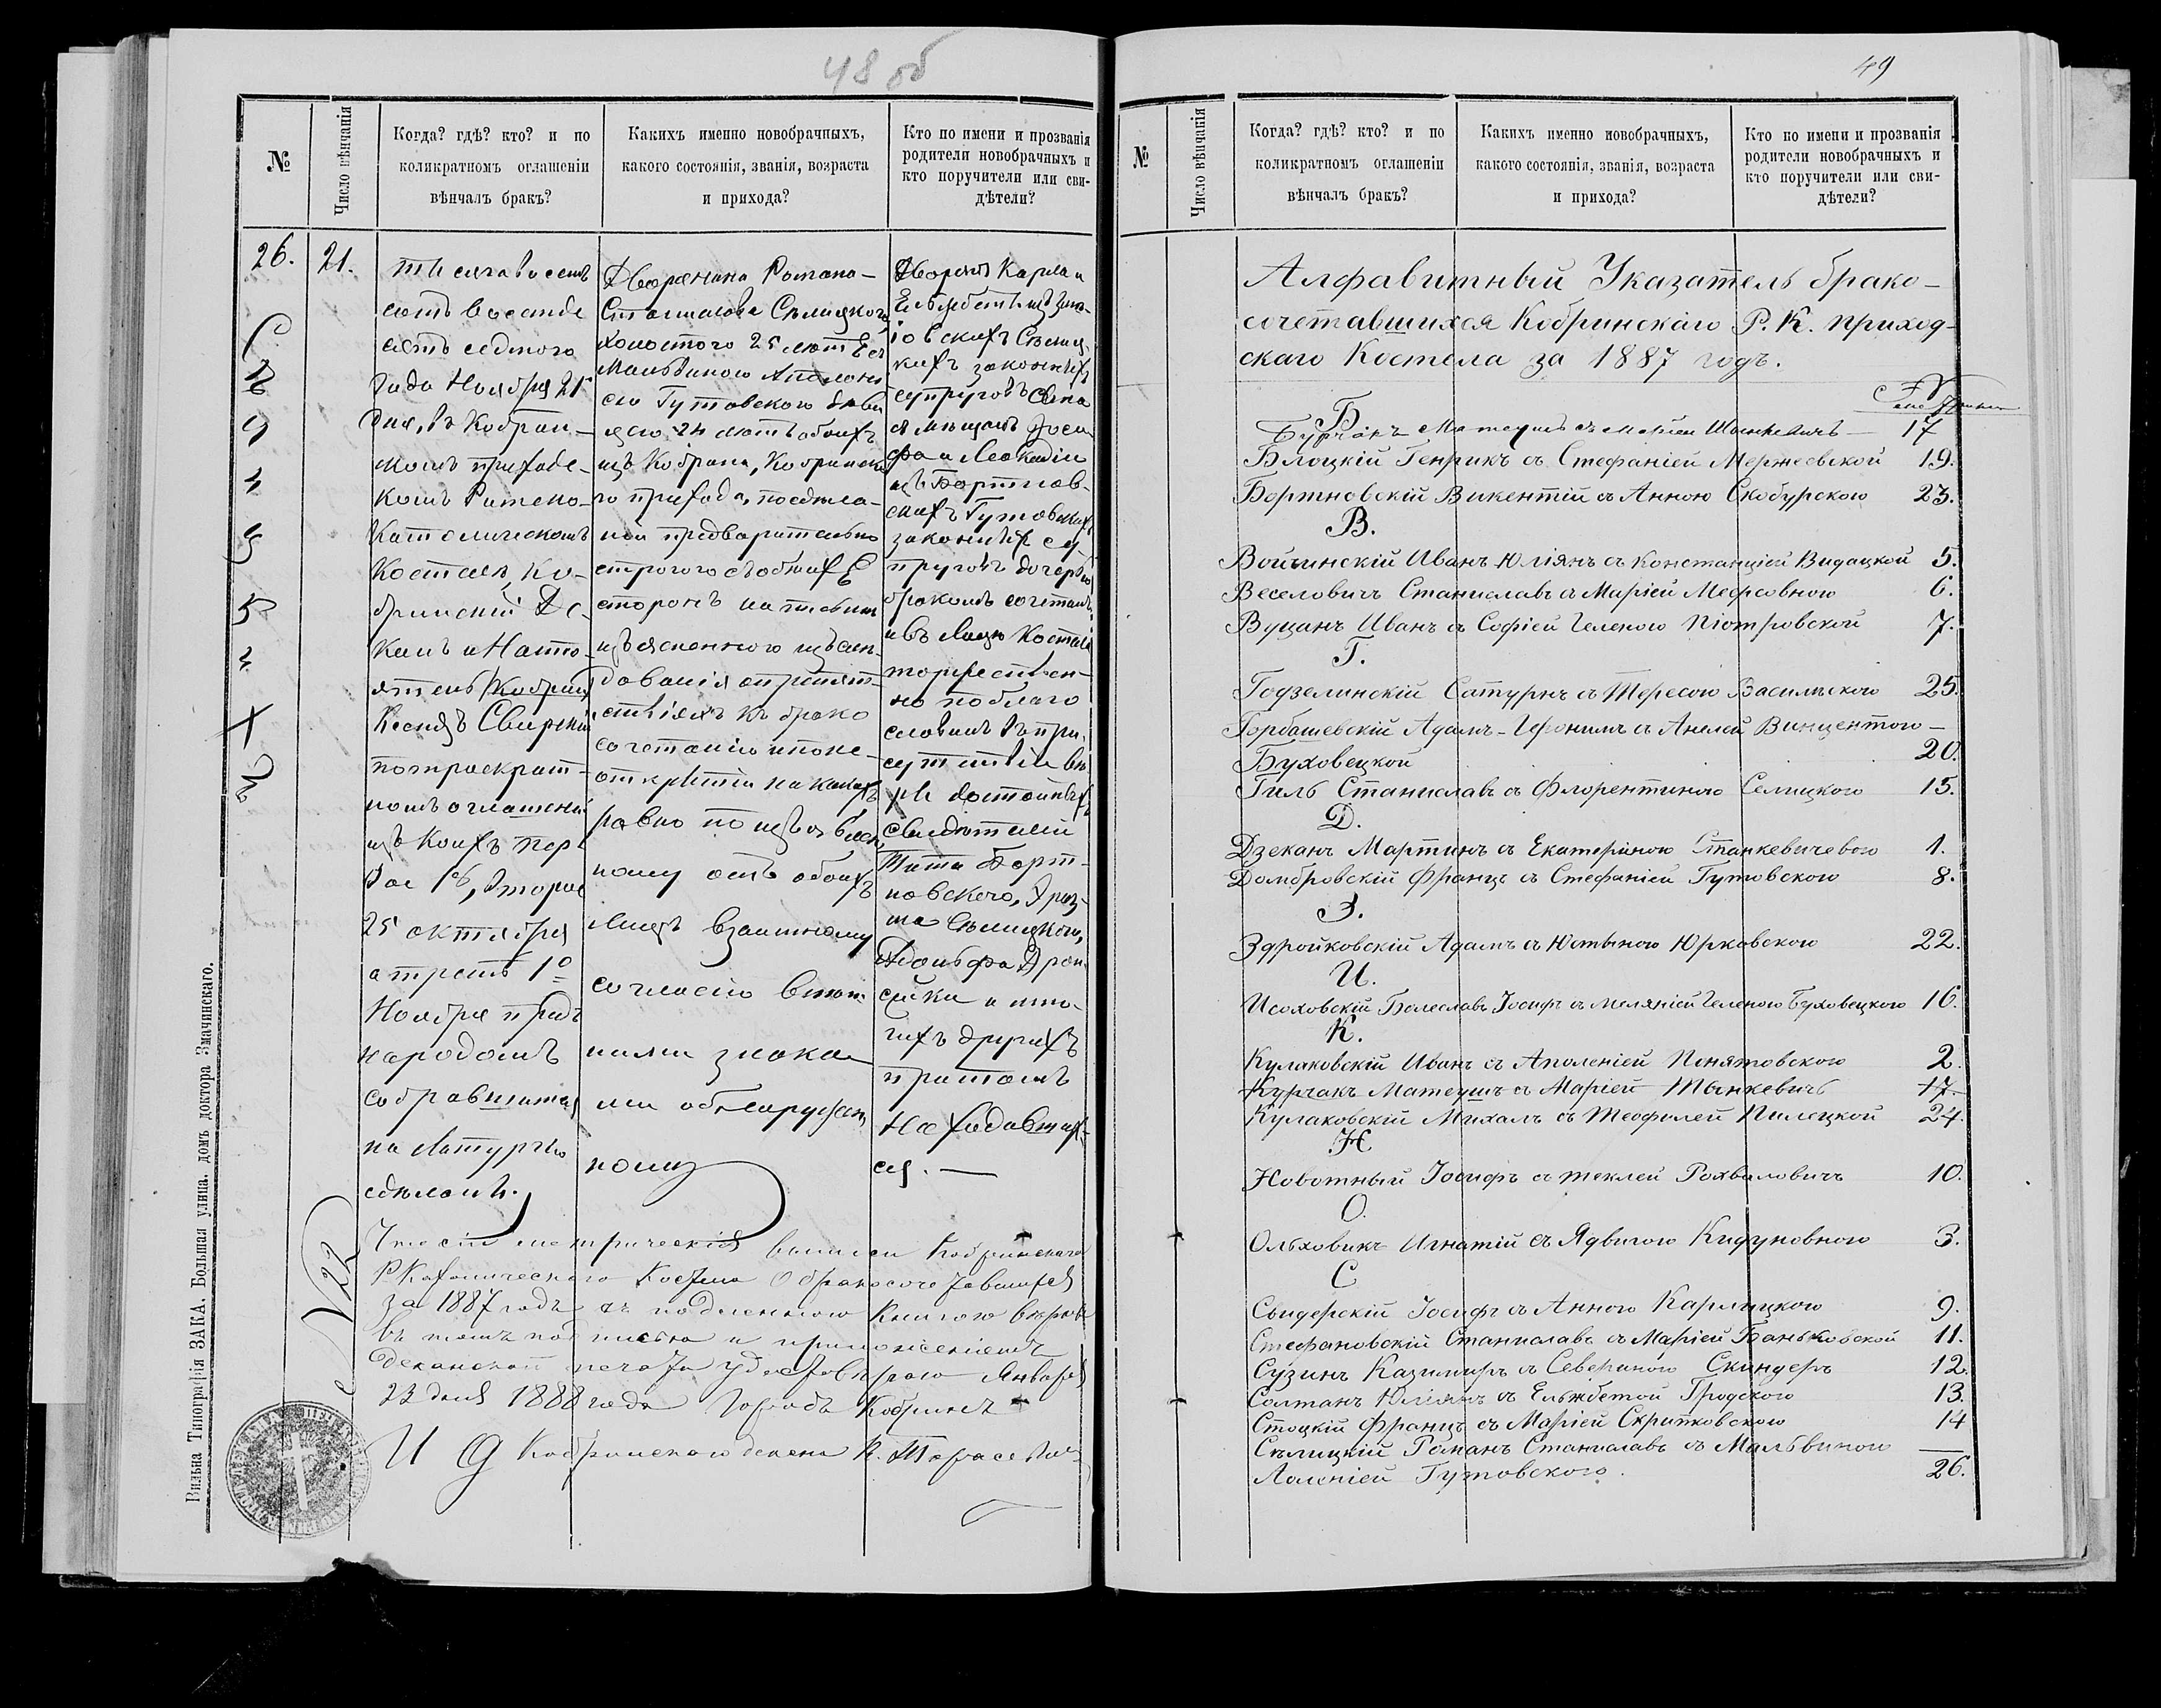 48 об
№
Число вѣнчанія
Когда? гдѣ? кто? и по
коликратномъ оглашеніи
вѣнчалъ бракъ?
Какихъ именно новобрачныхъ,
какого состоянія, званія, возраста
и прихода?
Кто по имени и прозванія
родители новобрачныхъ и
кто поручители или сви-
дѣтели?
26.
21.
Тысяча восемь
сотъ восемьде
сятъ седмого
года Ноября 21
дня, въ Кобрин-
скомъ приходс-
комъ Римско-
Католическомъ
Костелѣ, Ко-
бринскій Де-
канъ и Насто-
ятель Кобрин
Ксендзъ Свирскій
по троекрат-
номъ оглашеніи
изъ коихъ пер-
вое 18, второе
25 октября
а третье 1º
Ноября предъ
народомъ
собравшимся
на Литургію
сдѣланы.
Дворянина Романа-
Станислава Сѣлицкого
холостого 25 лѣтъ съ
Мальвиною Аполоні
ею Гутовского дѣви
цею 24 лѣтъ обоихъ
изъ Кобрина, Кобринска
го прихода, по сдѣла-
ніи предварительно
строгого съ обоихъ
сторонъ на письмѣ
изъясненного изслѣ-
дованія о препят-
ствіяхъ къ брако
сочетанію и по не-
открытіи никакихъ
равно по изъявлен
ному отъ обоихъ
лицъ взаимному
согласію внѣш
ними знака
ми обнаружен
ному
Дворянъ Карла и
Ельжбеты изъ
скихъ Сѣлиц
кихъ законныхъ
супруговъ сына
съ мѣщанъ Іоси
фа и Леокадіи
изъ Бортнов-
скихъ Гутовскихъ
законныхъ су-
пруговъ дочерью
бракомъ сочеталъ
и въ лицѣ Костела
торжествен-
но поблаго
словилъ въ при-
сутствіи вѣ
ры достойныхъ
свидѣтелей
Тита Борт-
новского,
Сѣлицкого,
Адольфа
и мно-
гихъ другихъ
притомъ
находившихъ-
ся.
Что сіи метрическія выписи Кобринскаго
РКатолическаго Костела о бракосочетавшихся
за 1887 годъ съ подленною книгою вѣрны
въ томъ подписью и приложеніемъ
деканской печати удостовѣряю Января
23 дня 1888 года Городъ Кобринъ
И Д Кобринского декана К.
Вильна Типографія ЗАКА. Большая улица. домъ доктора Змачинскаго.
49
№
Число вѣнчанія
Когда? гдѣ? кто? и по
коликратномъ оглашеніи
вѣнчалъ бракъ?
Какихъ именно новобрачныхъ,
какого состоянія, званія, возраста
и прихода?
Кто по имени и прозванія
родители новобрачныхъ и
кто поручители или сви-
дѣтели?
Алфавитный Указатель брако-
сочетавшихся Кобринскаго Р. К. приход-
скаго Костела за 1887 годъ.
№
Б
Бурчакъ Матеушъ съ Маріей 17
Блоцкій Генрикъ съ Стефаніей Мержеевской 19.
Бортновскій Викентій съ Анною Скобурскою 23.
В.
Войчинскій Иванъ Юліянъ съ Констанціей Видацкой 5.
Веселовичъ Станиславъ съ Маріей 6.
Вуцанъ Иванъ съ Софіей Геленою Піотровской 7.
Г.
Годзелинскій Сатурнъ съ Тересою Василевскою 25.
Горбашевскій Адамъ-Іеронимъ съ Анелей Винцентою-
Буховецкой 20.
Гиль Станиславъ съ Флорентиною Селицкою 15.
Д.
Дзеканъ Мартинъ съ Екатериною Станкевичевою 1.
Домбровскій Францъ съ Стефаніей Гутовскою 8.
З.
Здройковскій Адамъ съ Юстыною Юрковскою 22.
И.
Исоховскій Болеславъ Іосифъ съ Меляніей Геленою Буховецкою 16.
К.
Кулаковскій Иванъ съ Аполеніей Понятовскою 2.
Курчакъ Матеушъ съ Маріей 17.
Кулаковскій Михалъ съ Теофилей Пилецкой 24.
Н
Новотный Іосифъ съ Теклей Рохваловичъ 10.
О.
Ольховикъ Игнатій съ Ядвигою Кидуновною 3.
С
Свидерскій Іосифъ съ Анною Карлицкою 9.
Стефановскій Станиславъ съ Маріей Баньковской 11.
Сузинъ Казимиръ съ Севериною Скиндеръ 12.
Солтанъ Юліянъ съ Ельжбетой Гродскою 13.
Стоцкій Францъ съ Маріей Скрипковскою 14
Сѣлицкій Романъ Станиславъ съ Мальвиною
Аполеніей Гутовскою. 26.